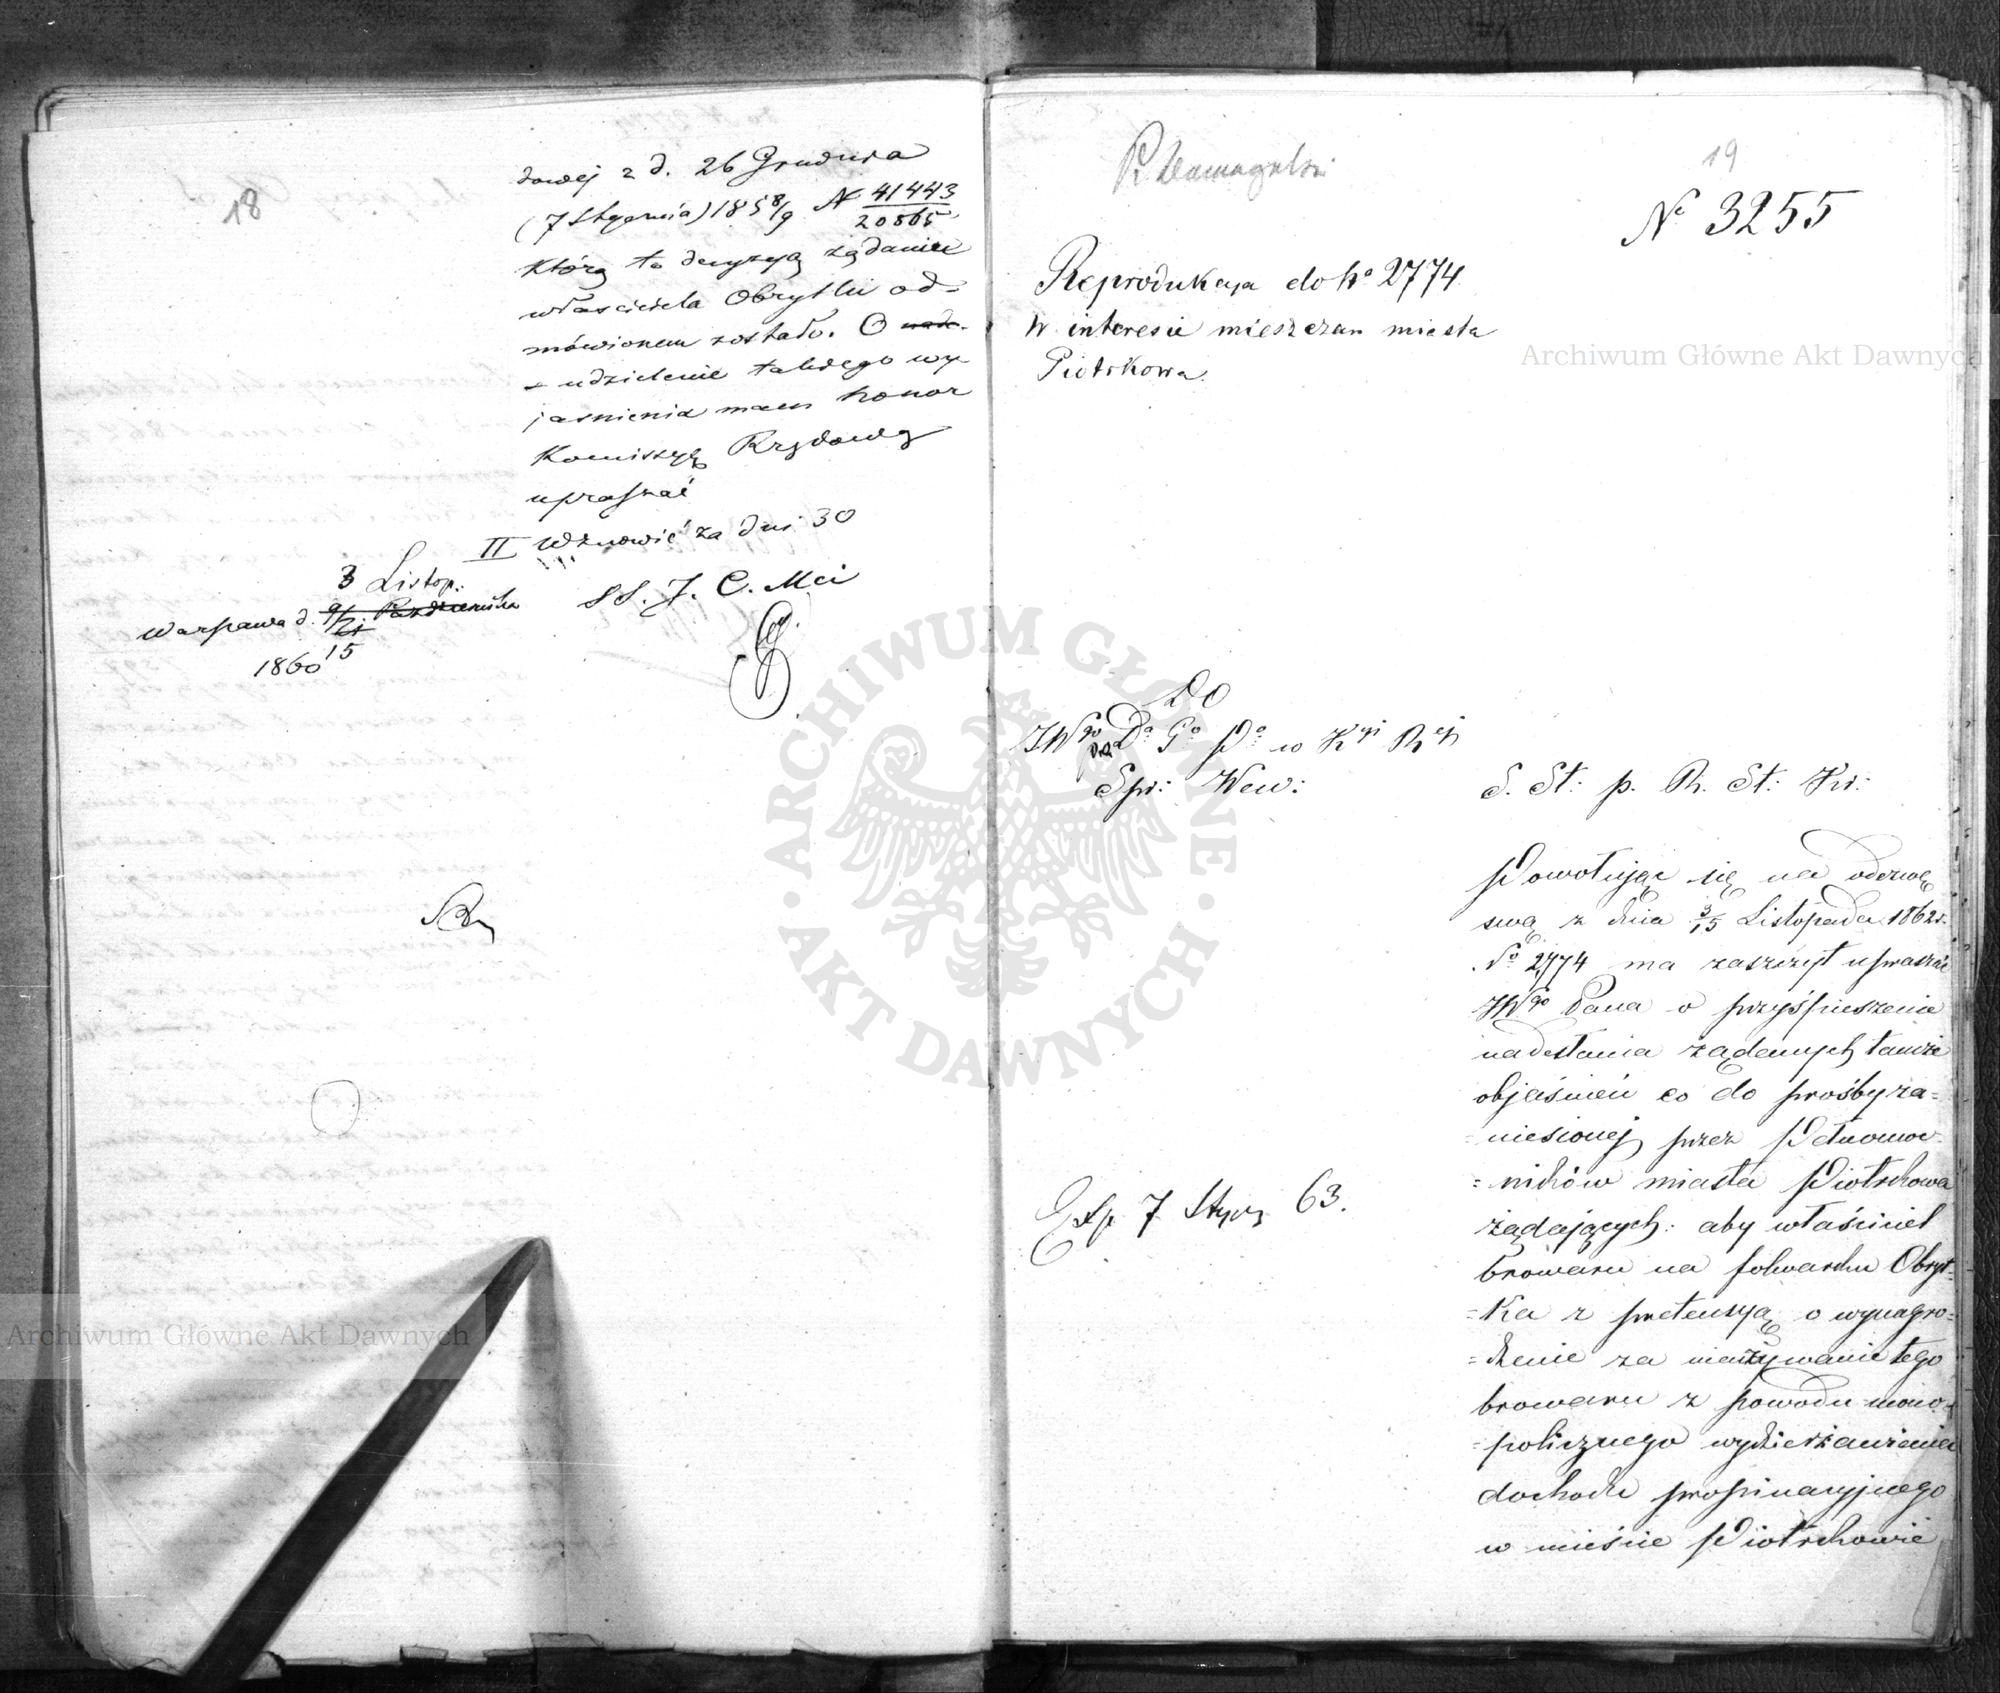 18
dowej z d. 26 Grudnia
(7 Stycznia) 185 8/9 N 41443/20865
którą to decyzyą żądanie
właściciela Obrytki od=
mówionem zostało. O
udzielenie takiego wy-
jaśnienia mam honor
Komissyę Rządową
upraszać
II Wznowić za dni 30
3 Listop.
Warszawa d. 9/21 Października
15
1860
SS. J. C. Mci
19
No 3255
Reprodukcya do No 2774
w interesie mieszczan miasta
Piotrkowa.
Do
JWgo Da Go Po w Kyi Rej
Spr: Wew:
S. St: p. R. St: Kr:
Powołując się na odezwę
swą z dnia 3/15 Listopada 1862 r.
No 2774 ma zaszczyt upraszać
JWgo Pana o przyśpieszenie
nadesłania żądanych tamże
objaśnień co do prośby za=
=niesionej przez Pełnomoc=
=ników miasta Piotrkowa
żądających: aby właściciel
browaru na folwarku Obryt=
=ka z pretensyą o wynagro=
=dzenie za nieużywanie tego
browaru z powodu mono=
=policznego wydzierżawienia
dochodu propinacyjnego
w mieście Piotrkowie
Exp 7 Stycz 63.
Archiwum Główne Akt Dawnych
Archiwum Główne Akt Dawnych
ARCHIWUM GŁÓWNE AKT DAWNYCH